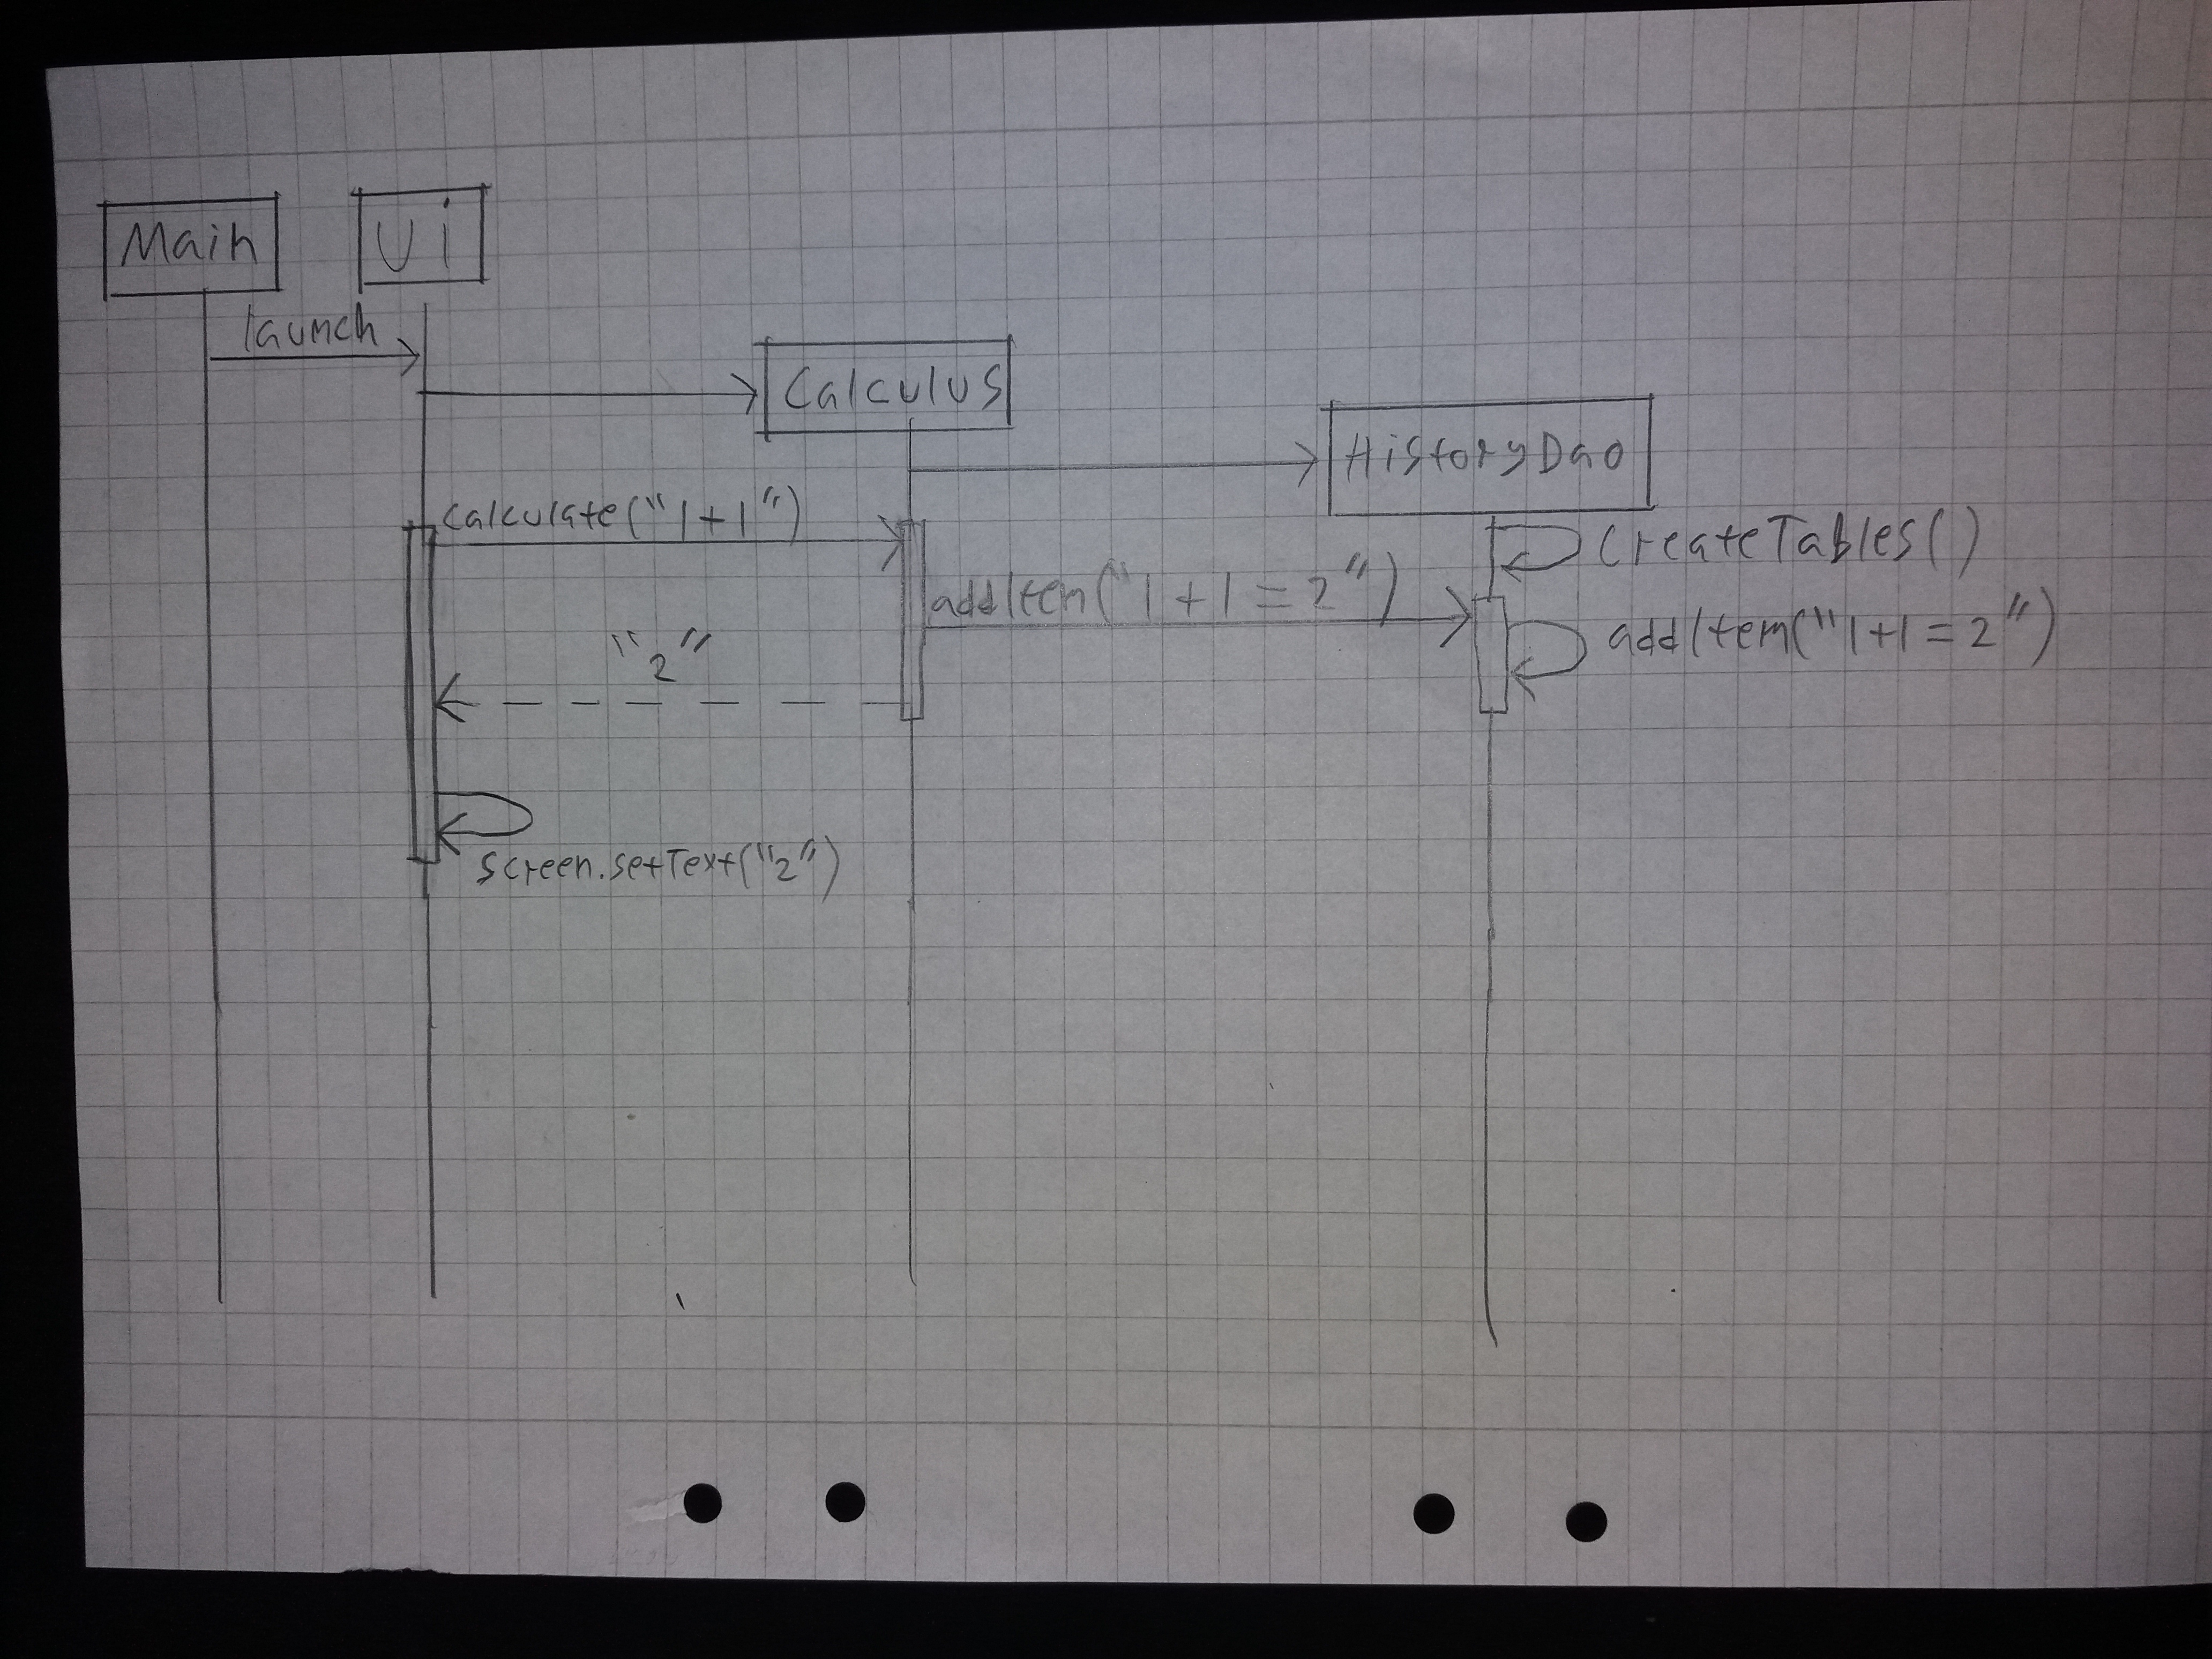 Main
Ui
launch
Calculus
HistoryDao
calculate("1+1")
createTables()
addItem("1+1=2")
addItem("1+1=2")
"2"
screen.setText("2")